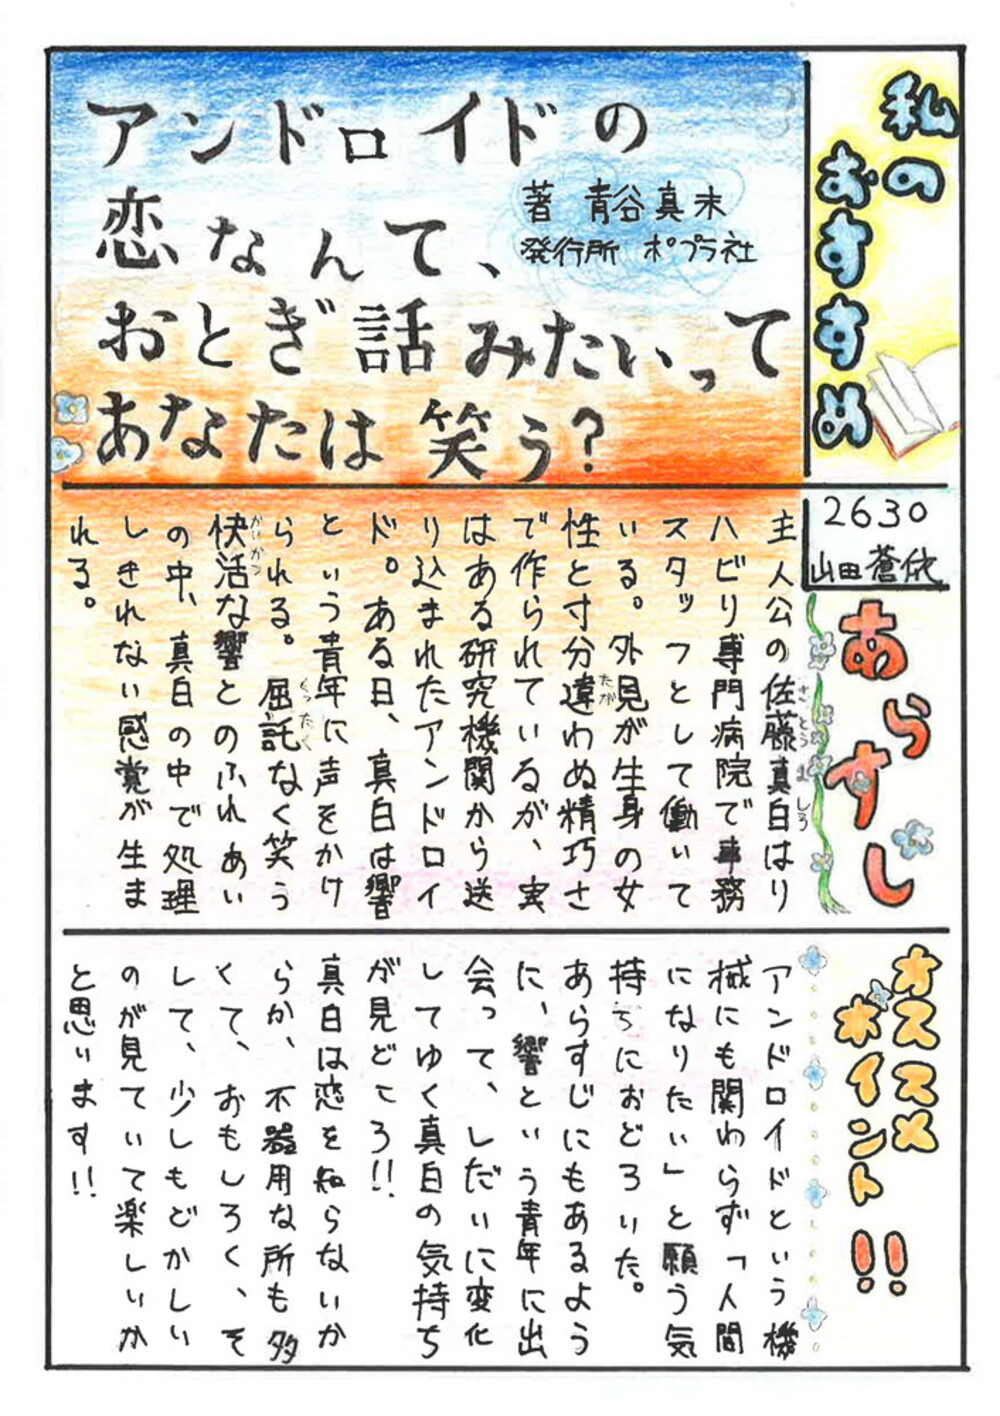 私の
おすすめ
アンドロイドの
恋なんて、
おとぎ話みたいって
あなたは笑う?
著 青谷真未
発行所 ポプラ社
2630
山田蒼依
あらすじ
主人公の佐藤真白はリ
ハビリ専門病院で事務
スタッフとして働いて
いる。外見が生身の女
性と寸分違わぬ精巧さ
で作られているが、実
はある研究機関から送
り込まれたアンドロイ
ド。ある日、真白は響
という青年に声をかけ
られる。屈託なく笑う
快活な響とのふれあい
の中、真白の中で処理
しきれない感覚が生ま
れる。
さとうましろ
たが
くったく
かいかつ
オススメ
ポイント!!
アンドロイドという機
械にも関わらず「人間
になりたい」と願う気
持ちにおどろいた。
あらすじにもあるよう
に、響という青年に出
会って、しだいに変化
してゆく真白の気持ち
が見どころ!!
真白は恋を知らないか
らか、不器用な所も多
くて、おもしろく、そ
して、少しもどかしい
のが見ていて楽しいか
と思います!!